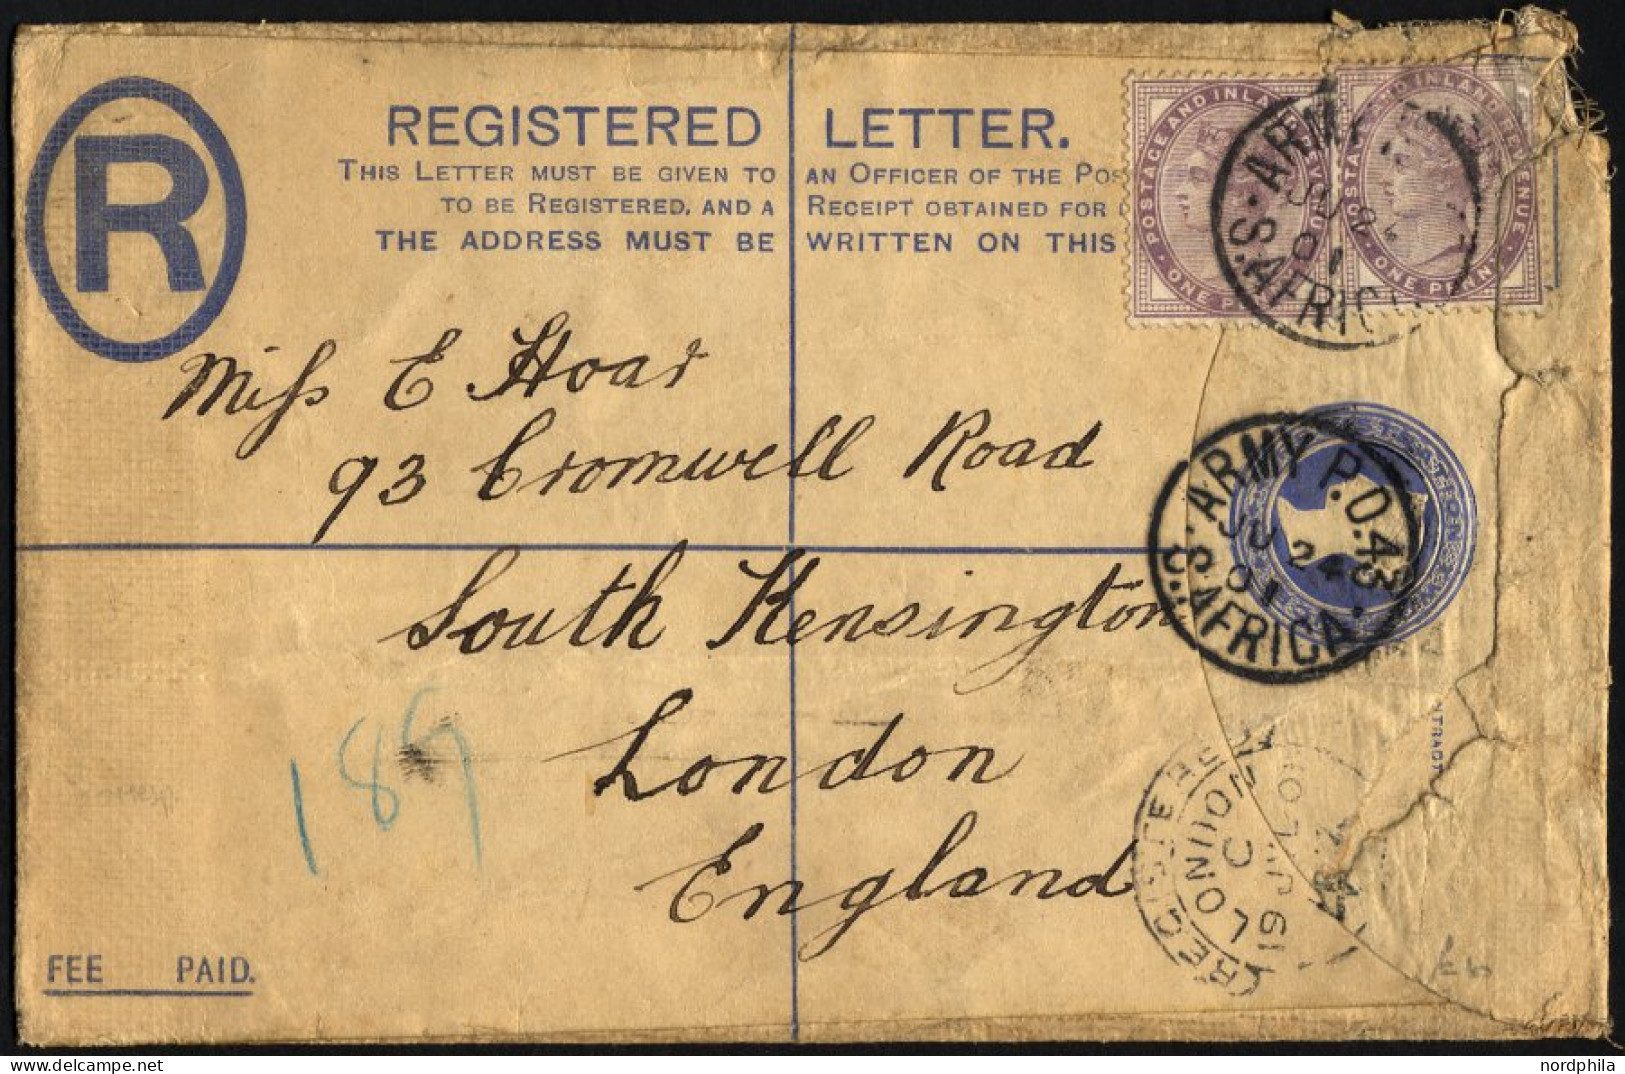 R
REGISTERED LETTER.
THIS LETTER MUST BE GIVEN TO AN OFFICER OF THE POS
TO BE REGISTERED, AND A RECEIPT OBTAINED FOR
THE ADDRESS MUST BE WRITTEN ON THIS
POSTAGE AND INLA
ONE P
POSTAGE AND INLAND REVENUE
ONE PENN
ARMY
JU 2
01
S. AFRICA
Miss E Hoar
93 Cromwell Road
South Kensington
London
England
ARMY P.O. 43
JU 24
01
S. AFRICA
189
REGISTERED
LONDON
C
19 JL 01
NTRACT
FEE PAID.
© nordphila